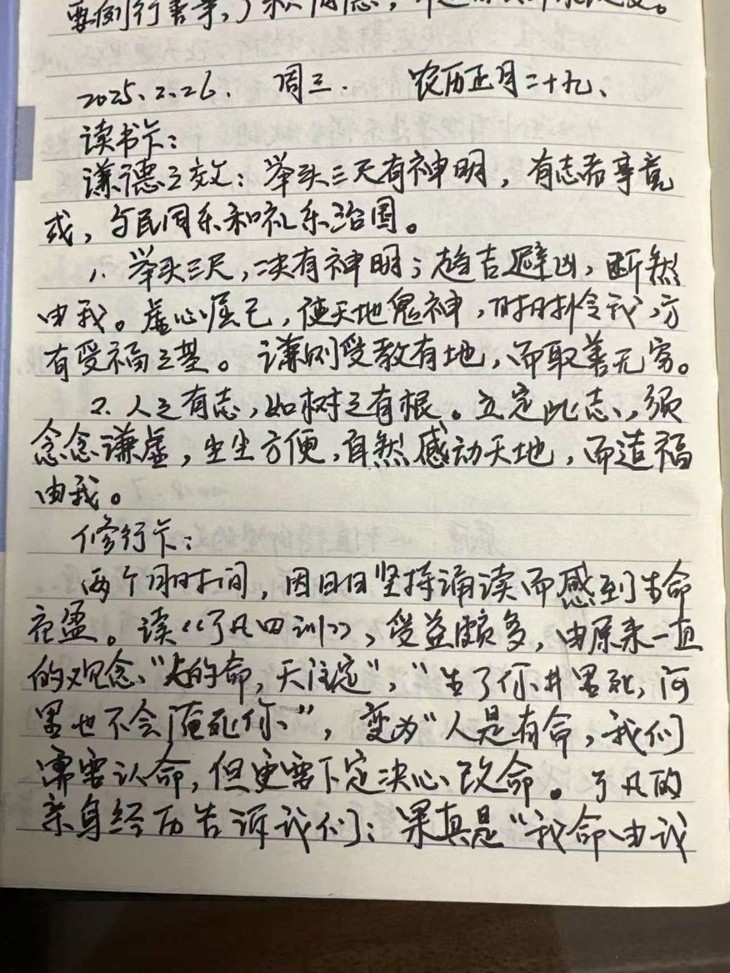 要例行善事，广积阴德，
2025.2.26. 周三. 农历正月二十九、
读书卡：
谦德之效：举头三天有神明，有志者事竟
成，与民同乐和礼乐治国。
1. 举头三尺，决有神明；趋吉避凶，断然
由我。虚心屈己，使天地鬼神，时时怜我，方
有受福之基。谦则受教有地，而取善无穷。
2. 人之有志，如树之有根。立定此志，须
念念谦虚，尘尘方便，自然感动天地，而造福
由我。
修行卡：
两个月时间，因日日坚持诵读而感到生命
充盈。读《了凡四训》，受益颇多，由原来一直
的观念“人的命，天注定”，“生了你井里死，河
里也不会淹死你”，变为“人是有命，我们
需要认命，但更要下定决心改命。了凡的
亲身经历告诉我们：果真是“我命由我